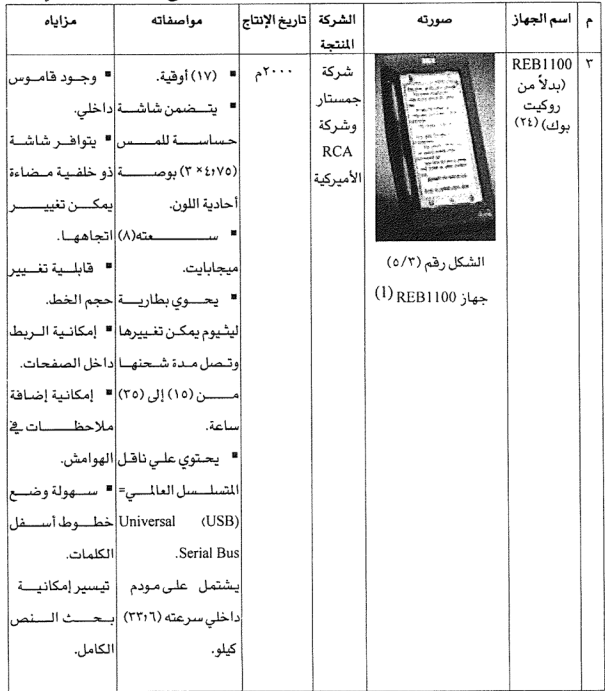 م
اسم الجهاز
صورته
الشركة
المنتجة
تاريخ الإنتاج
مواصفاته
مزاياه
٣
REB1100
(بدلاً من
روكيت
بوك) (٢٤)
الشكل رقم (٥/٣)
جهاز REB1100 (1)
شركة
جمستار
وشركة
RCA
الأميركية
٢٠٠٠م
▪ (١٧) أوقية.
▪ يتضمن شاشة
حساسة للمس
(٤,٧٥×٣) بوصة
أحادية اللون.
▪ سعته (٨)
ميجابايت.
▪ يحوي بطارية
ليثيوم يمكن تغييرها
وتصل مدة شحنها
من (١٥) إلى (٣٥)
ساعة.
▪ يحتوي علي ناقل
المتسلسل العالمي=
Universal (USB)
Serial Bus.
يشتمل على مودم
داخلي سرعته (٣٣,٦)
كيلو.
▪ وجود قاموس
داخلي.
▪ يتوافر شاشة
ذو خلفية مضاءة
يمكن تغيير
اتجاهها.
▪ قابلية تغيير
حجم الخط.
▪ إمكانية الربط
داخل الصفحات.
▪ إمكانية إضافة
ملاحظات في
الهوامش.
▪ سهولة وضع
خطوط أسفل
الكلمات.
تيسير إمكانية
بحث النص
الكامل.